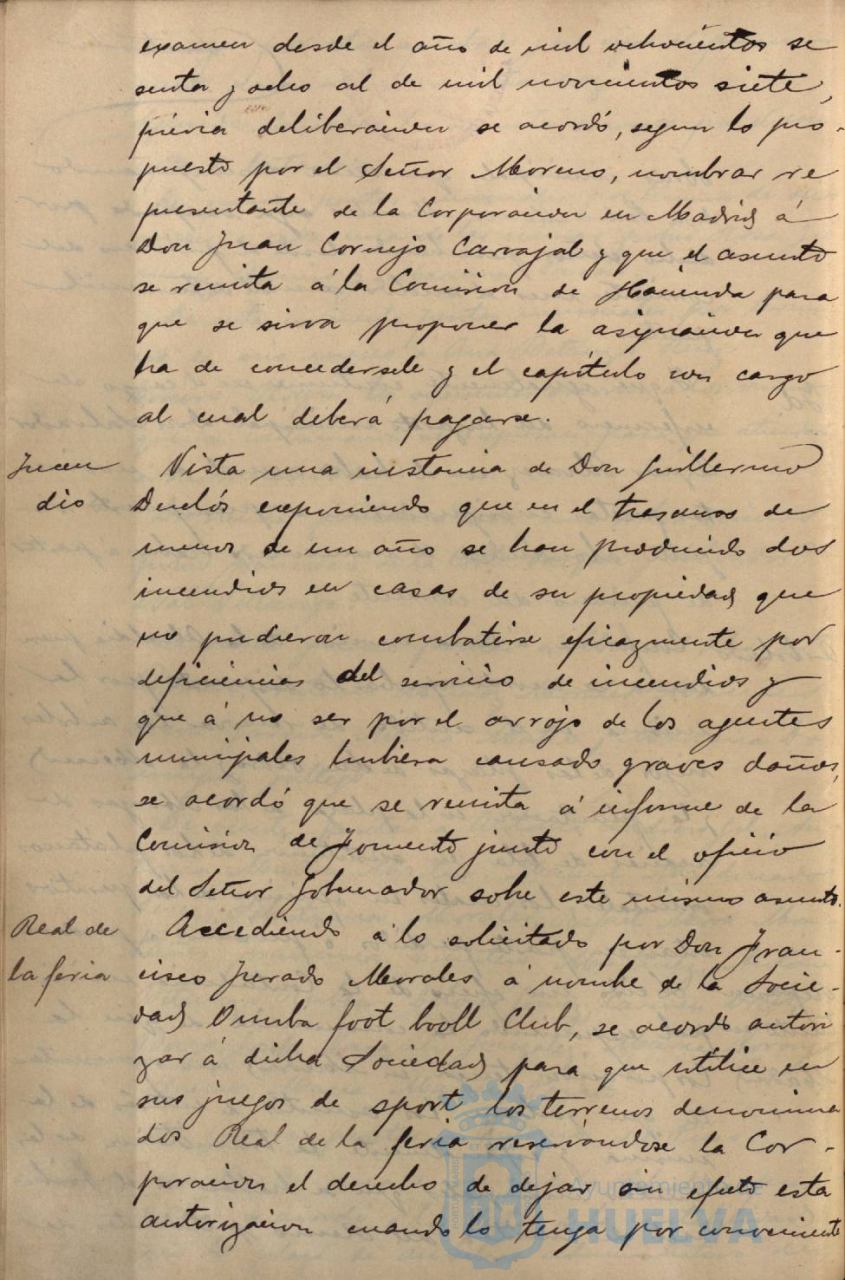 examen desde el año de mil ochocientos se
senta y ocho al de mil novecientos siete,
previa deliberación se acordó, segun lo pro-
puesto por el Señor Moreno, nombrar re
presentante de la Corporación en Madrid á
Don Juan Cornejo Carvajal y que el asunto
se remita á la Comisión de Hacienda para
que se sirva proponer la asignación que
ha de concedersele y el capítulo con cargo
al cual deberá pagarse.
Incen
dio
Vista una instancia de Don Guillermo
Duclós exponiendo que en el trascurso de
menos de un año se han producido dos
incendios en casas de su propiedad que
no pudieron combatirse eficazmente por
deficiencias del servicio de incendios y
que á no ser por el arrojo de los agentes
municipales hubiera causado graves daños,
se acordó que se remita á informe de la
Comisión de Fomento junto con el oficio
del Señor Gobernador sobre este mismo asunto.
Real de
la feria
Accediendo á lo solicitado por Don Fran-
cisco Jurado Morales á nombre de la Socie-
dad Onuba foot booll Club, se acordó autori
zar á dicha Sociedad para que utilice en
sus juegos de sport los terrenos denomina
dos Real de la feria reservándose la Cor-
poración el derecho de dejar sin efecto esta
autorización cuando lo tenga por conveniente
Ayuntamiento de
HUELVA